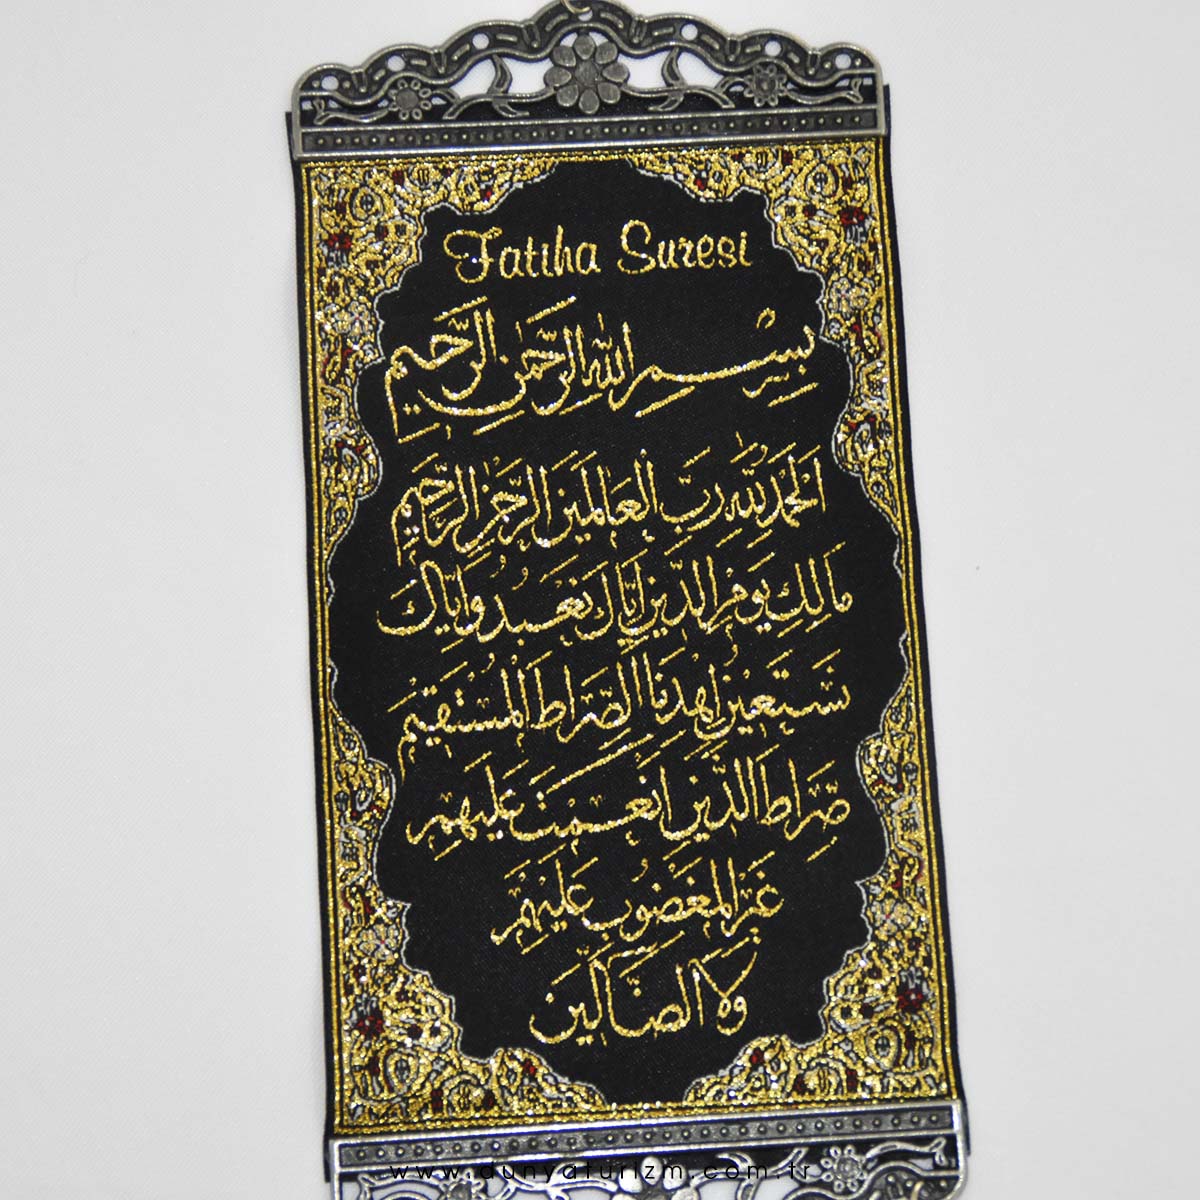 Fatiha Suresi
بِسْمِ اللهِ الرَّحْمٰنِ الرَّحِيمِ
اَلْحَمْدُ لِلّٰهِ رَبِّ الْعَالَمِينَ الرَّحْمٰنِ الرَّحِيمِ
مَالِكِ يَوْمِ الدِّينِ اِيَّاكَ نَعْبُدُ وَاِيَّاكَ
نَسْتَعِينُ اِهْدِنَا الصِّرَاطَ الْمُسْتَقِيمَ
صِرَاطَ الَّذِينَ اَنْعَمْتَ عَلَيْهِمْ
غَيْرِ الْمَغْضُوبِ عَلَيْهِمْ
وَلَا الضَّالِّينَ
www.dunyaturizm.com.tr